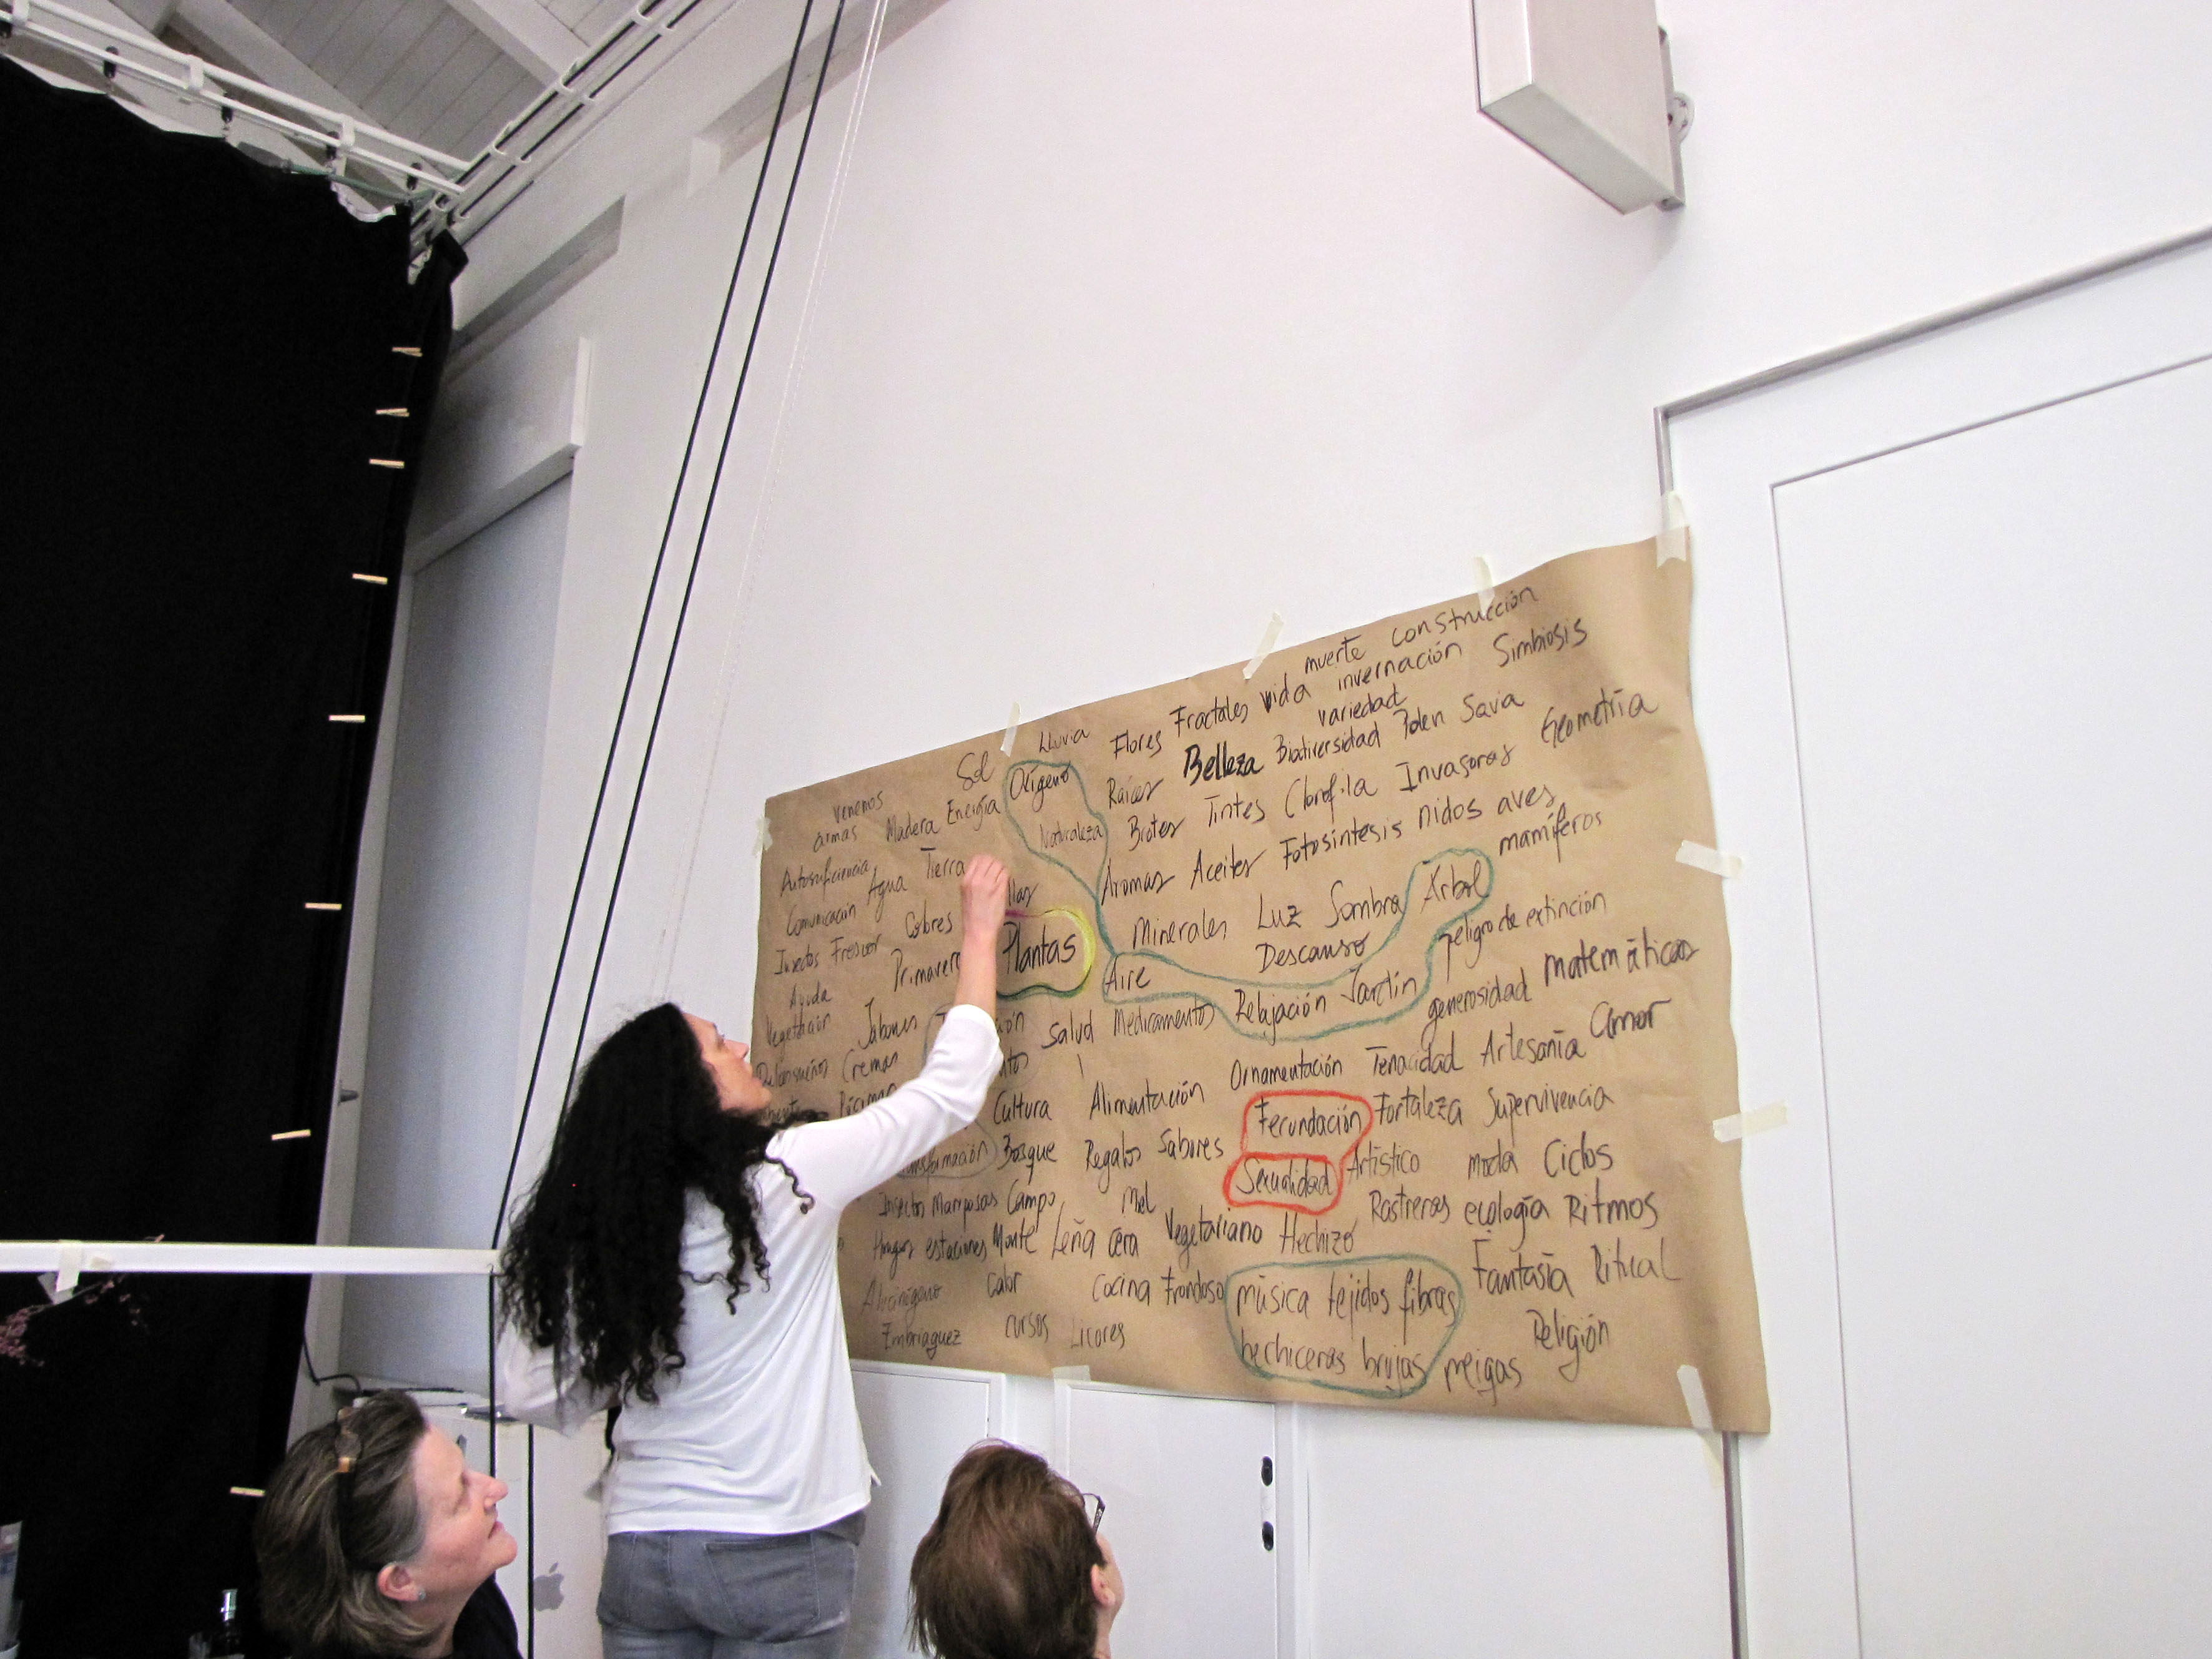 muerte construcción
Fractales vida invernación Simbiosis
Sol Lluvia Flores variedad
venenos Oxígeno Raíces Belleza Biodiversidad Polen Sava Geometría
armas Madera Energía Naturaleza Brotes Tintes Clorofila Invasoras
Autosuficiencia Agua Tierra Aromas Aceites Fotosíntesis nidos aves
Comunicación Colores Minerales Luz Sombra Árbol mamíferos
Insectos Frescor Primavera Plantas Aire Descanso peligro de extinción
Ayuda Relajación Jardín generosidad matemáticas
Vegetación Jabones Salud Medicamentos
Cremas Ornamentación Tenacidad Artesanía Amor
Cultura Alimentación Fecundación Fortaleza Supervivencia
Bosque Regalos Sabores Sexualidad Artístico moda Ciclos
Insectos Mariposas Campo Miel Rastreras ecología Ritmos
estaciones Monte Leña Cera Vegetariano Hechizo
Calor Cocina Frondoso música tejidos fibras Fantasía Ritual
Embriaguez cursos Licores hechiceras brujas meigas Religión